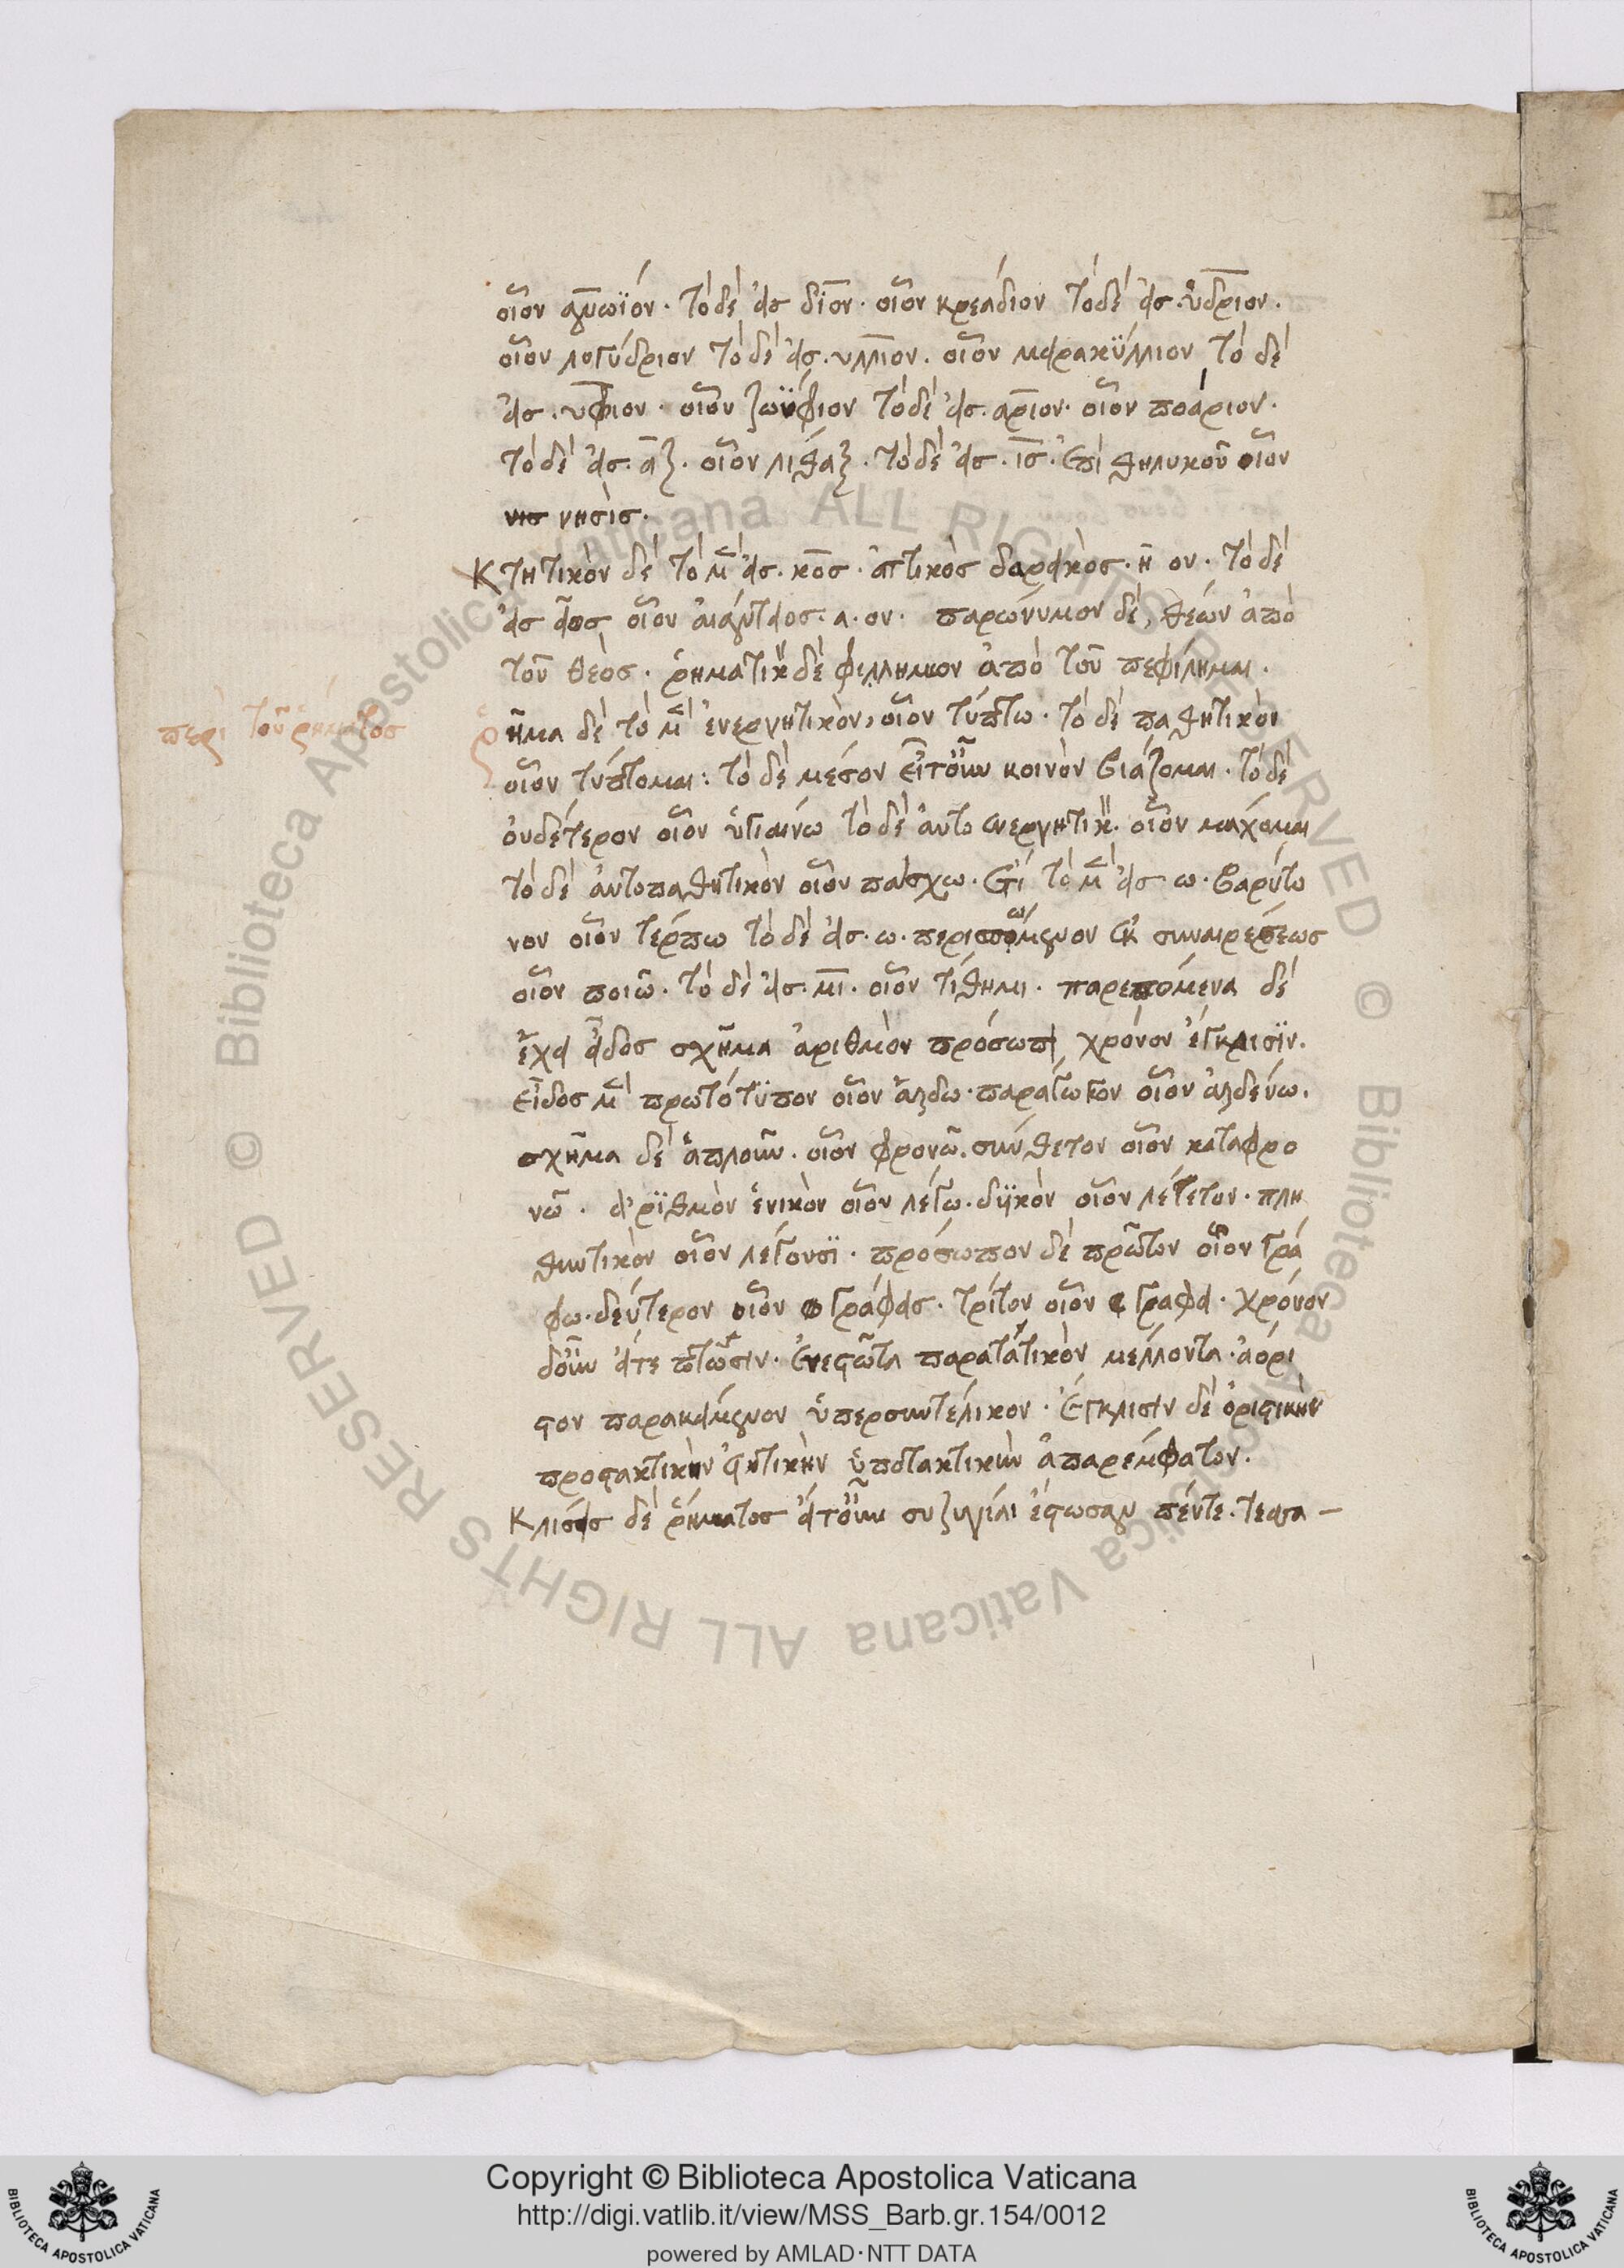 οἷον ἀνωϊόν. τὸ δὲ εἰς διον. οἷον κρεάδιον τὸ δὲ εἰς. ύδριον.
οἷον λογύδριον τὸ δὲ εἰς. υλλιον. οἷον μειρακύλλιον τὸ δὲ
εἰς. υφιον. οἷον ζωύφιον τὸ δὲ εἰς. αριον. οἷον ποάριον.
τὸ δὲ εἰς. αξ. οἷον λίθαξ. τὸ δὲ εἰς. ις. ἐπὶ θηλυκοῦ οἷον
νησὶς.
Κτητικὸν δὲ τὸ μὲν εἰς. κος. ἀττικὸς δαρεικὸς. η ον. τὸ δὲ
εἰς ειος οἷον αἰάντειος. α. ον. παρώνυμον δὲ, θεών ἀπὸ
τοῦ θεὸς. ῥηματικὸν δὲ φιλλημων ἀπὸ τοῦ πεφίλημαι.
περὶ τοῦ ῥήματος
ῥῆμα δὲ τὸ μὲν ἐνεργητικὸν, οἷον τύπτω. τὸ δὲ παθητικὸν
οἷον τύπτομαι: τὸ δὲ μέσον εἴτουν κοινὸν βιάζομαι. τὸ δὲ
οὐδέτερον οἷον ὑγιαίνω τὸ δὲ αὐτο ενεργητικὸν. οἷον μάχομαι
τὸ δὲ αὐτοπαθητικὸν οἷον πάσχω. ἔτι τὸ μὲν εἰς ω. βαρύτο
νον οἷον τέρπω τὸ δὲ εἰς. ω. περισπώμενον ἐκ συναιρέσεως
οἷον ποιῶ. τὸ δὲ εἰς. μι. οἷον τίθημι. παρεπόμενα δὲ
ἔχει εἶδος σχῆμα ἀριθμὸν πρόσωπον χρόνον ἔγκλισϊν.
εἶδος μὲν πρωτότϋπον οἷον ἄλδω. παράγωγον οἷον ἀλδένω.
σχῆμα δὲ ἁπλοῦν. οἷον φρονῶ. σύνθετον οἷον καταφρο
νῶ. ἀρϊθμὸν ἑνικὸν οἷον λέγω. δϋικὸν οἷον λέγετον. πλη
θυντικὸν οἷον λέγουσϊ. πρόσωπον δὲ πρῶτον οἷον γρά
φω. δεύτερον οἷον γράφεις. τρίτον οἷον γραφει. χρόνον
δοῦν εἴτε πτῶσιν. ἐνεστῶτα παρατατικὸν μέλλοντα. ἀόρι
στον παρακείμενον ὑπερσυντέλικον. ἔγκλισιν δὲ ὁριστικὴν
προστακτικὴν εὐκτικὴν ὑποτακτικὴν ἀπαρέμφατον.
Κλίσεις δὲ ῥήματος εἴτουν συζυγίαι ἔστωσαν πέντε. τεσσα –
Copyright © Biblioteca Apostolica Vaticana
http://digi.vatlib.it/view/MSS_Barb.gr.154/0012
powered by AMLAD·NTT DATA